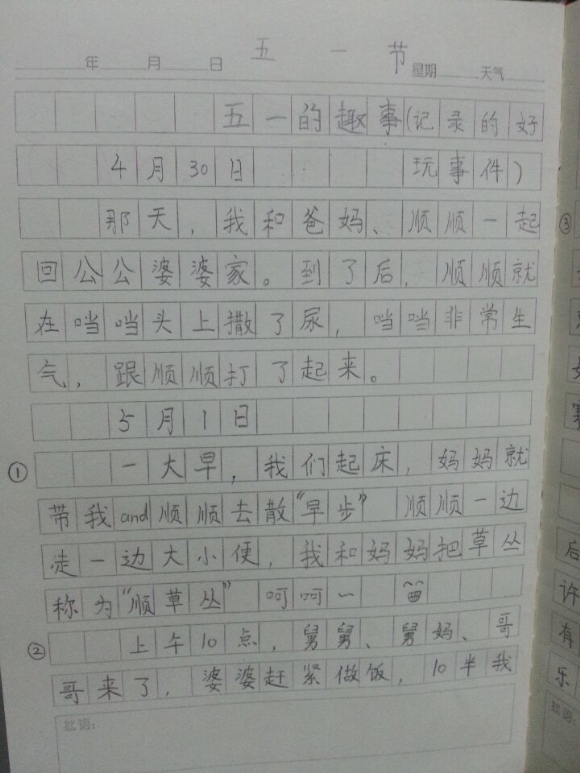 五一节
年 月 日 星期 天气
五一的趣事(记录的好
4月30日 玩事件)
那天，我和爸妈、顺顺一起
回公公婆婆家。到了后，顺顺就
在当当头上撒了尿，当当非常生
气，跟顺顺打了起来。
5月1日
① 一大早，我们起床，妈妈就
带我and顺顺去散“早步” 顺顺一边
走一边大小便，我和妈妈把草丛
称为“顺草丛” 呵呵一
② 上午10点，舅舅、舅妈、哥
哥来了，婆婆赶紧做饭，10半我
批语：
③
后
许
有
乐
批语：